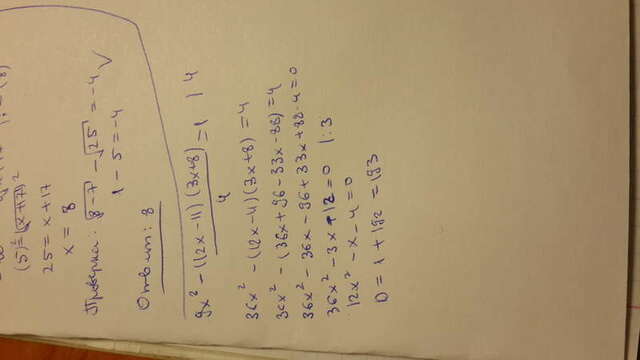 (5)²=(√x+17)²
25 = x+17
x = 8
Проверка: √8-7 - √25 = -4
1 - 5 = -4 √
Ответ: 8
9x² - ((12x-11)(3x+8))/4 = 1 | 4
36x² - (12x-4)(3x+8) = 4
36x² - (36x+96-33x-88) = 4
36x² - 36x - 96 + 33x + 88 - 4 = 0
36x² - 3x - 12 = 0 | :3
12x² - x - 4 = 0
D = 1 + 192 = 193